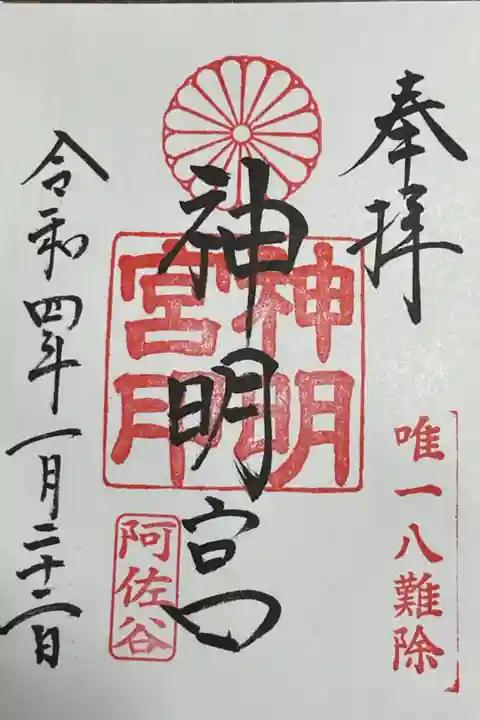 奉拝
唯一八難除
神明宮
神明宮印
阿佐谷
令和四年一月二十二日